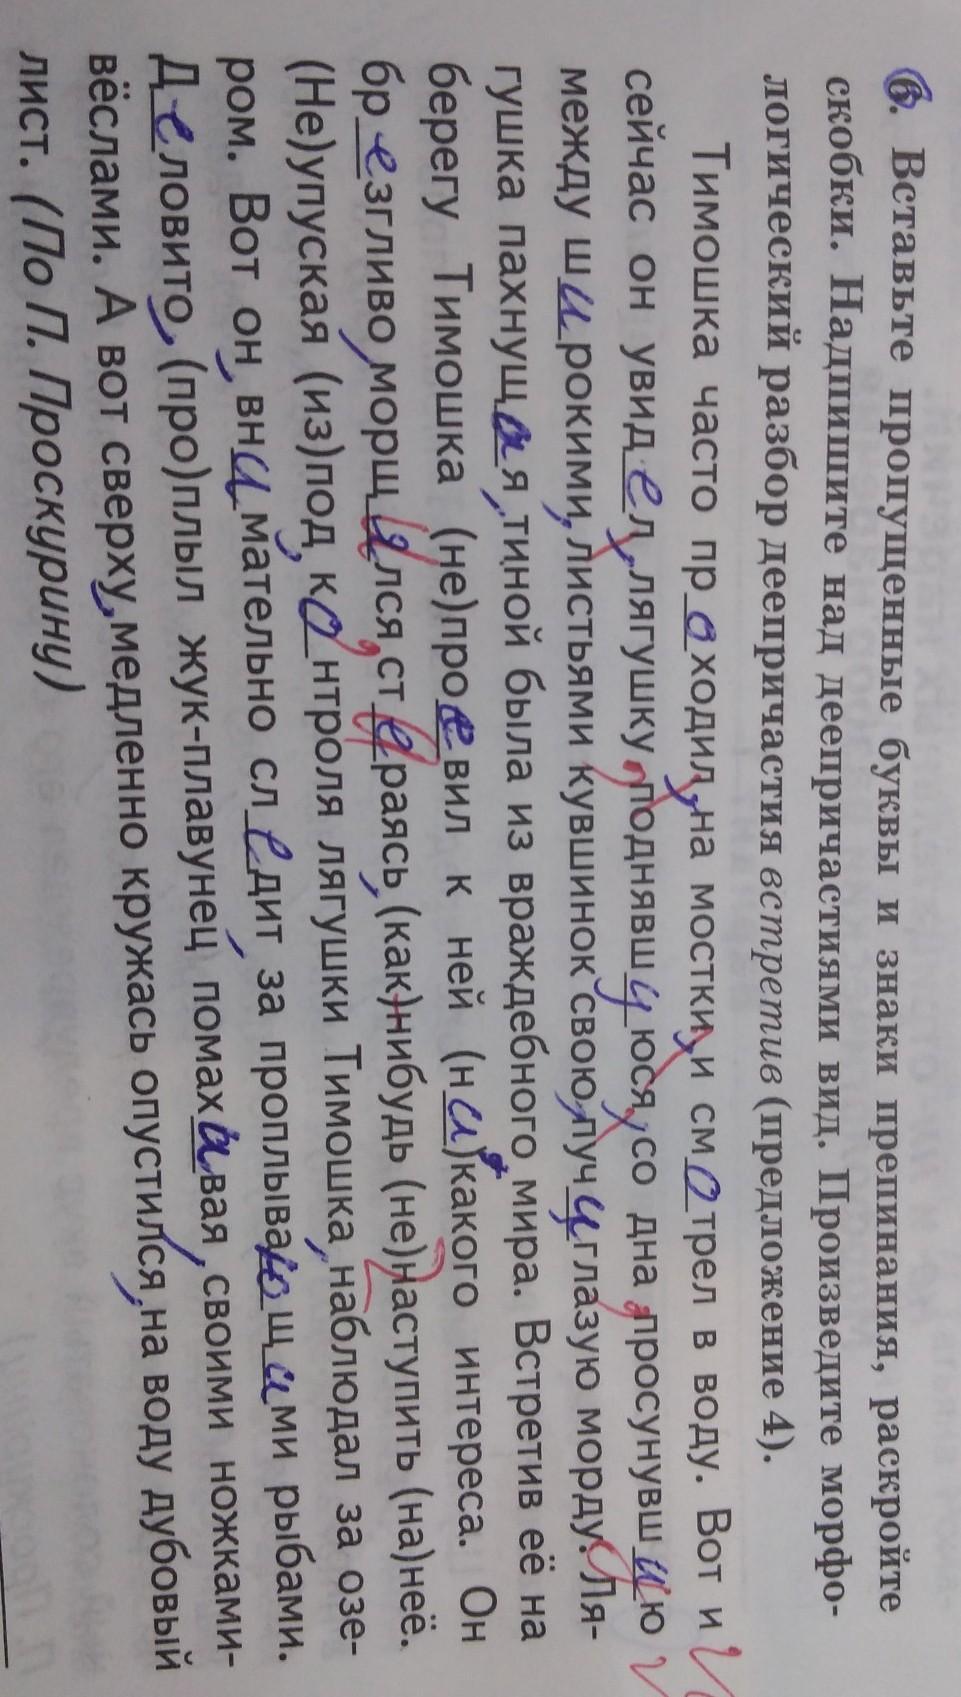 6. Вставьте пропущенные буквы и знаки препинания, раскройте
скобки. Надпишите над деепричастиями вид. Произведите морфо-
логический разбор деепричастия встретив (предложение 4).
Тимошка часто пр_о_ходил, на мостки, и см_о_трел в воду. Вот и
сейчас он увид_е_л, лягушку, поднявш_у_юся, со дна, просунувш_у_ю
между ш_и_рокими, листьями кувшинок свою, луч_и_глазую морду. Ля-
гушка пахнущ_а_я, тиной была из враждебного мира. Встретив её на
берегу Тимошка (не)про_е_вил к ней (н_и_)какого интереса. Он
бр_е_згливо, морщ_и_лся, ст_а_раясь, (как)-нибудь (не)наступить (на)неё.
(Не)упуская (из)под, к_о_нтроля лягушки Тимошка, наблюдал за озе-
ром. Вот он, вн_и_мательно сл_е_дит за проплыва_ю_щ_и_ми рыбами.
Д_е_ловито, (про)плыл жук-плавунец, помах_и_вая, своими ножками-
вёслами. А вот сверху, медленно кружась опустился, на воду дубовый
лист. (По П. Проскурину)